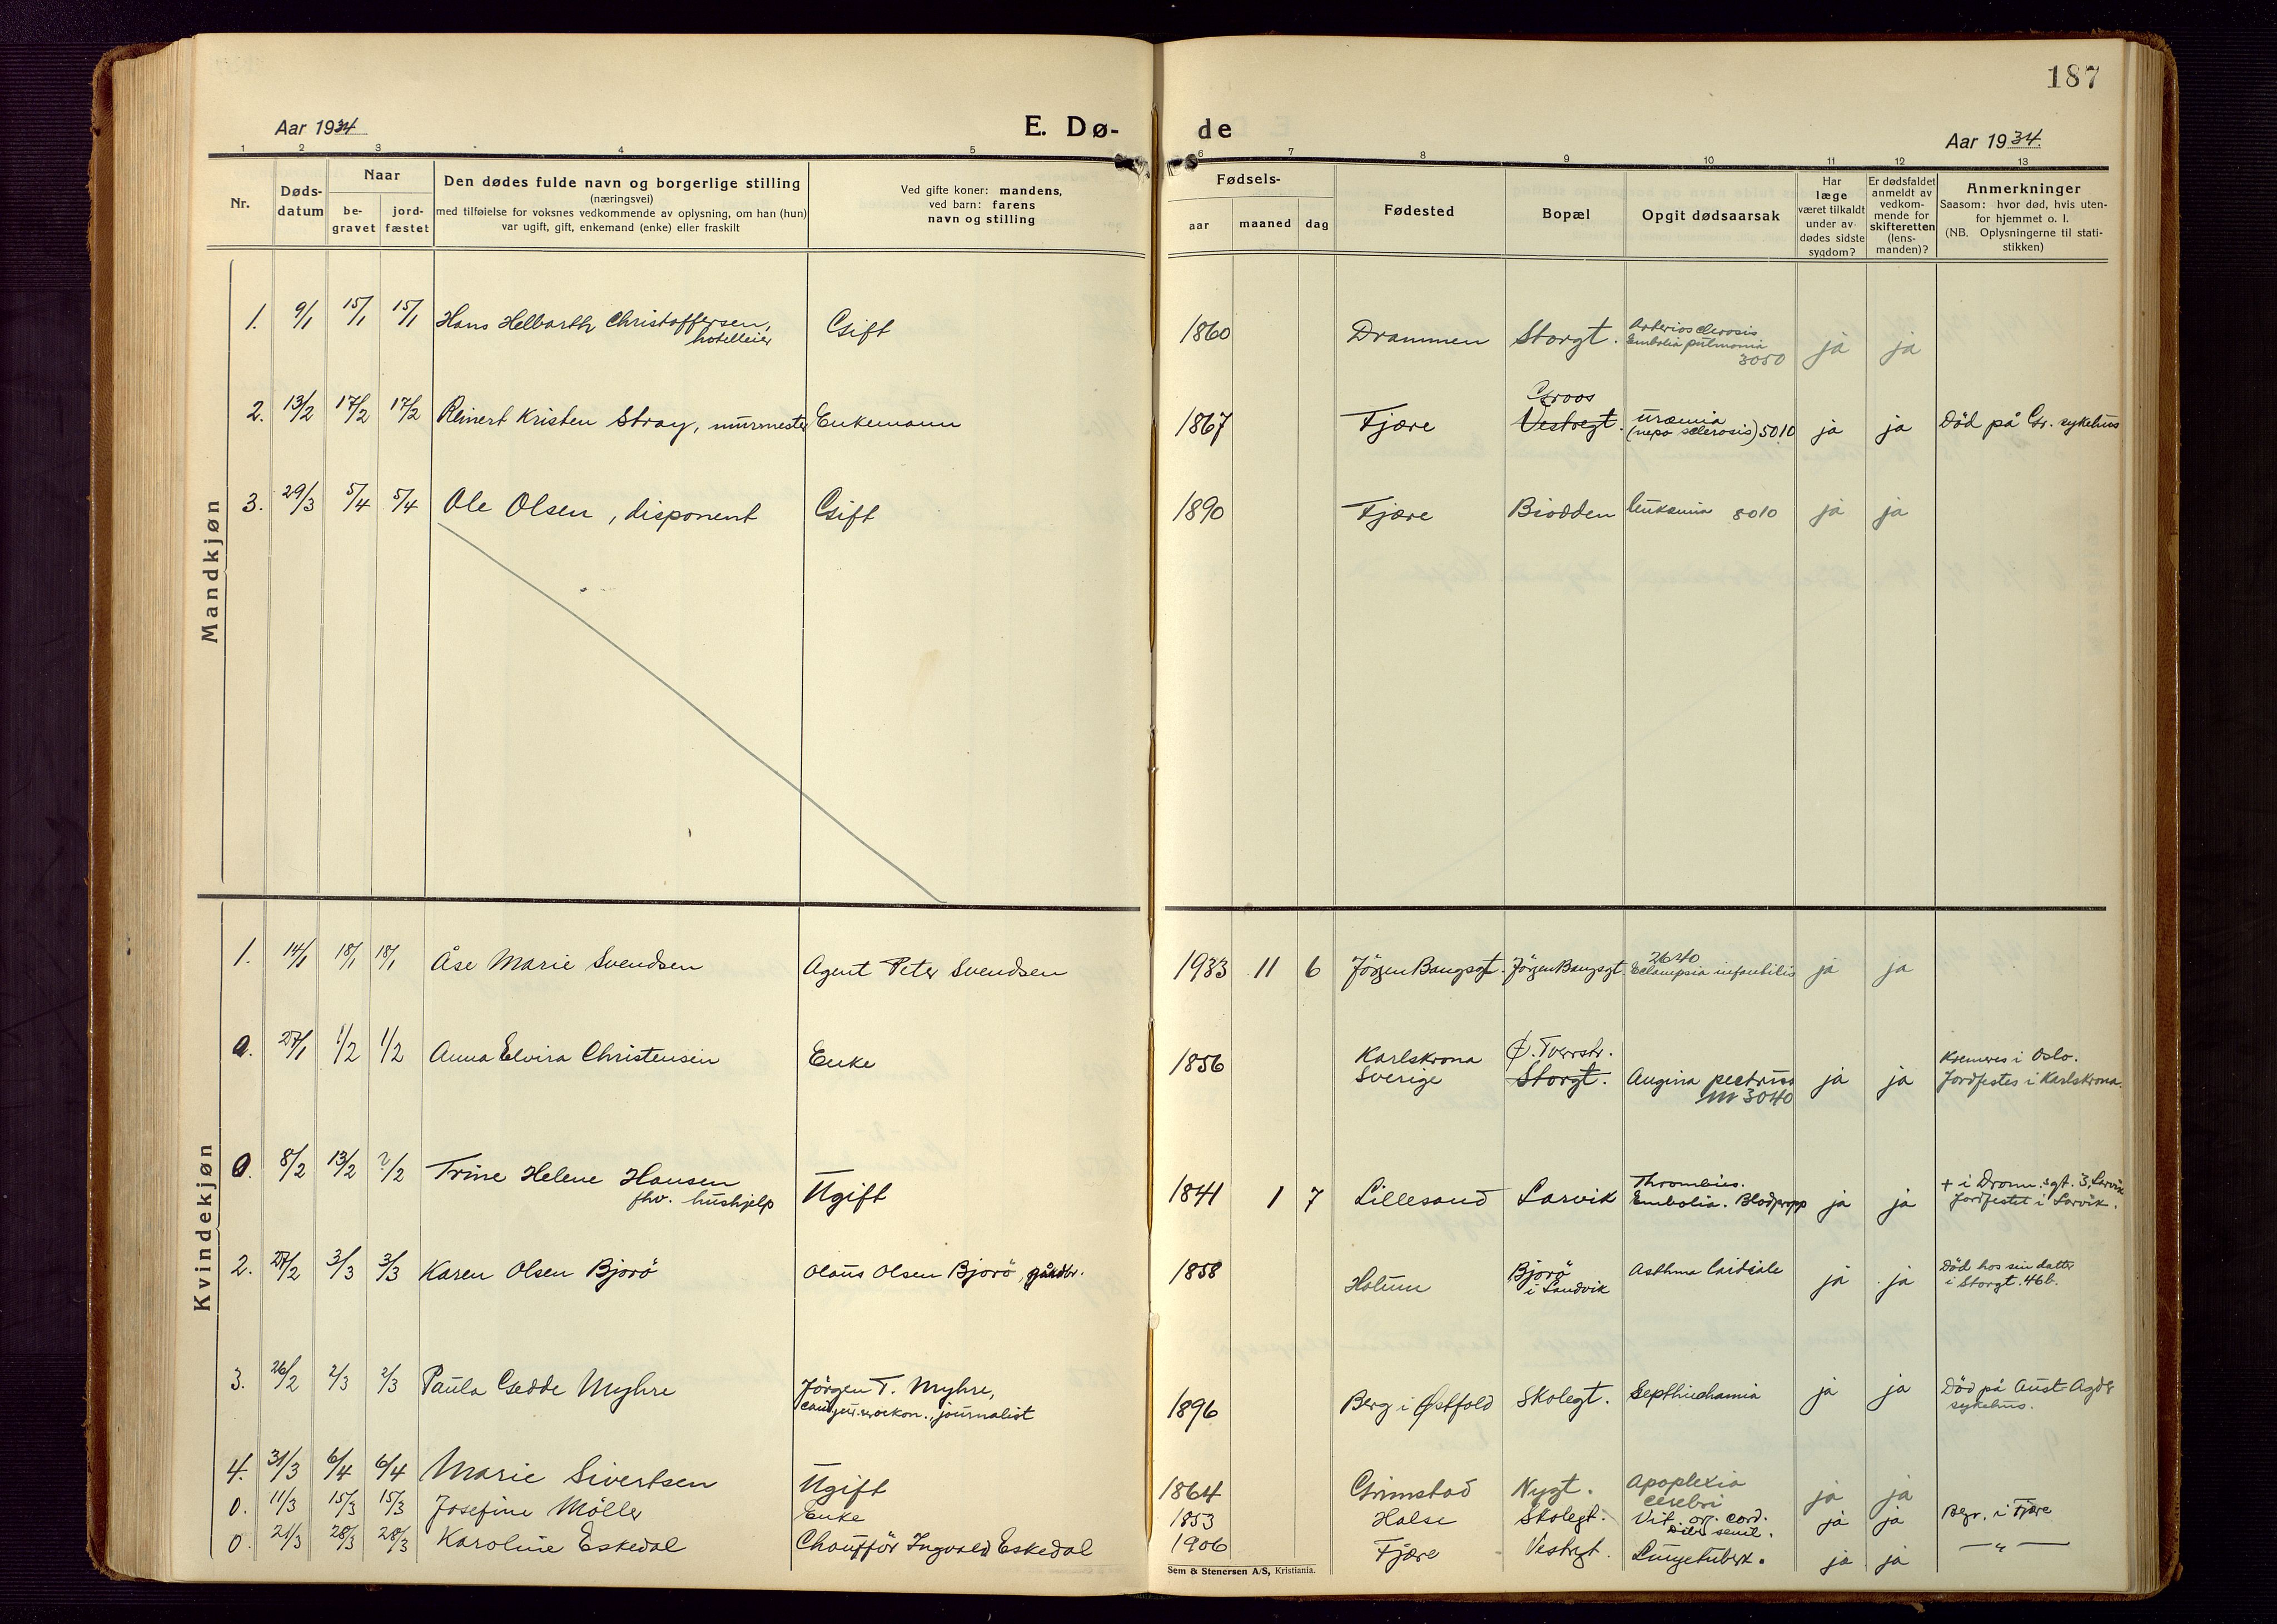 187
Aar 1934
E. Dø-
de
Aar 1934.
1 2 3 4 5 6 7 8 9 10 11 12 13
Nr.
Døds-
datum
Naar
be-
gravet
jord-
fæstet
Den dødes fulde navn og borgerlige stilling
(næringsvei)
med tilføielse for voksnes vedkommende av oplysning, om han (hun)
var ugift, gift, enkemand (enke) eller fraskilt
Ved gifte koner: mandens,
ved barn: farens
navn og stilling
Fødsels-
aar
maaned
dag
Fødested
Bopæl
Opgit dødsaarsak
Har
læge
været tilkaldt
under av-
dødes sidste
sygdom?
Er dødsfaldet
anmeldt av
vedkom-
mende for
skifteretten
(lens-
manden)?
Anmerkninger
Saasom: hvor død, hvis uten-
for hjemmet o. l.
(NB. Oplysningerne til stati-
stikken)
Mandkjøn
1. 9/1 15/1 15/1 Hans Helbarth Christoffersen,
hotelleier
Gift 1860 Drammen Storgt. Arteriosclerosis
Embolia pulmonia
3050
ja ja
2. 13/2 17/2 17/2 Reinert Kristen Stray, murmester Enkemann 1867 Fjære
Groos
Vestregt.
uræmia
(nepo sclerosis) 5010 ja ja Död på Gr. sykehus
3. 29/3 5/4 5/4 Ole Olsen, disponent Gift 1890 Fjære Biodden leukæmia 8010 ja ja
Kvindekjøn
1. 14/1 18/1 18/1 Åse Marie Svendsen Agent Peter Svendsen 1933 11 6 Jörgen Bangsgt. Jörgen Bangsgt
2640
Eclampsia infantilis ja ja
0. 27/1 1/2 1/2 Anna Elvira Christensen Enke 1856 Karlskrona
Sverige
Ø. Tverrstr.
Storgt.
Angina pectoris
3040
ja ja
Kremeres i Oslo.
Jordfestes i Karlskrona.
0. 8/2 13/2 ?/2 Trine Helene Hansen
fhv. hushjelp
Ugift 1841 1 7 Lillesand Larvik
Thrombus.
Embolia. Blodpropp
ja ja
+ i Dronn.sgt. 3, Larvik
Jordfestet i Larvik.
2. 27/2 3/3 3/3 Karen Olsen Bjorö Olaus Olsen Bjorö, gårdbr. 1858 Holum
Bjorö
i Landvik
Asthma cardiale ja ja
Död hos sin datter
i Storgt. 46b.
3. 26/2 2/3 2/3 Paula Gedde Myhre
Jörgen T. Myhre,
journalist
1896 Berg i Østfold Skolegt. Septhichæmia ja ja
Död på Aust-Agder
sykehus.
4. 31/3 6/4 6/4 Marie Sivertsen Ugift 1864 Grimstad Nygt. Apoplexia
cerebri
ja ja
0. 11/3 15/3 15/3 Josefine Möller Enke 1853 Halse Skolegt. Vit. org. cord.
senil.
ja ja Begr. i Fjære
0. 21/3 28/3 28/3 Karoline Eskedal Chauffør Ingvald Eskedal 1906 Fjære Vestregt. Lungetuberk. ja ja — " —
Sem & Stenersen A/S, Kristiania.